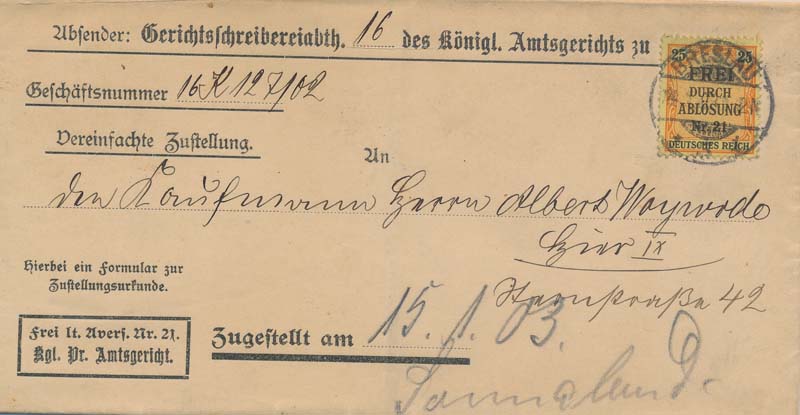 Absender: Gerichtsschreibereiabth. 16 des Königl. Amtsgerichts zu
25 25
FREI
DURCH
ABLÖSUNG
Nr. 21
DEUTSCHES REICH
BRESLAU
Geschäftsnummer 16 K 127/02
Vereinfachte Zustellung.
An
den Kaufmann Herrn Albert Woywode
Hier IX
Sternstraße 42
Hierbei ein Formular zur
Zustellungsurkunde.
Frei lt. Avers. Nr. 21.
Kgl. Pr. Amtsgericht.
Zugestellt am 15. 1. 03.